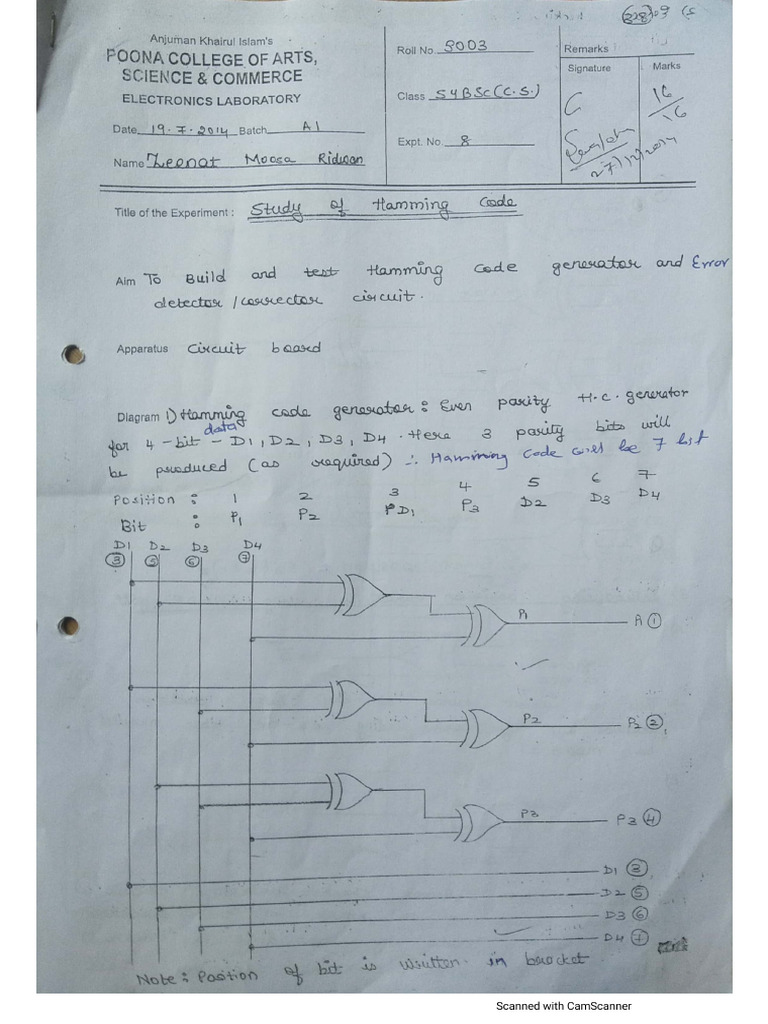 Anjuman Khairul Islam's
POONA COLLEGE OF ARTS,
SCIENCE & COMMERCE
ELECTRONICS LABORATORY
Date 19.7.2014 Batch A1
Name Zeenat Moosa Ridwan
Roll No. 9003
Class SYBSc(C.S.)
Expt. No. 8
Remarks
Signature
Marks
16
16
27/12/2014
Title of the Experiment : Study of Hamming Code
Aim To Build and test Hamming code generator and Error
detector/corrector circuit.
Apparatus Circuit board
Diagram 1) Hamming code generator: Even parity H.C. generator
data
for 4-bit - D1, D2, D3, D4. Here 3 parity bits will
be produced (as required) ∴ Hamming Code will be 7 bit
Position : 1 2 3 4 5 6 7
Bit : P1 P2 D1 P3 D2 D3 D4
D1 D2 D3 D4
3 5 6 7
P1
1
P2
P2 2
P3
P3 4
D1 3
D2 5
D3 6
D4 7
Note: Position of bit is written in bracket
Scanned with CamScanner